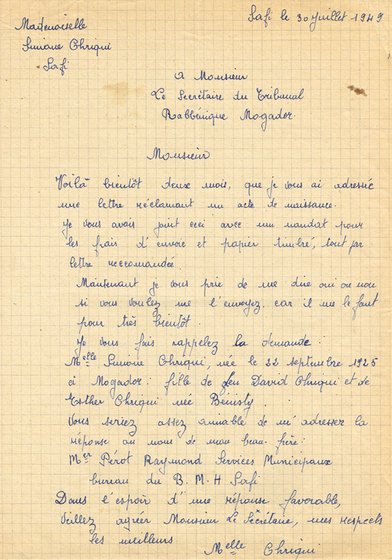 Safi le 30 Juillet 1949
Mademoiselle
Simone Ohriqui
Safi
A Monsieur
Le Secrétaire du Tribunal
Rabbinique Mogador.
Monsieur
Voilà bientôt deux mois, que je vous ai adressée
une lettre réclamant un acte de naissance.
Je vous avais joint ceci avec un mandat pour
les frais d'envoie et papier timbré, tout par
lettre reccomandée.
Maintenant je vous prie de me dire oui ou non
si vous voulez me l'envoyez, car il me le faut
pour très bientôt.
Je vous fais rappelez la demande.
Melle Simone Ohriqui, née le 22 septembre 1925
à Mogador: fille de feu David Ohriqui et de
Esther Ohriqui née Bénisty.
Vous seriez assez aimable de m'adressez la
réponse au nom de mon beau-frère:
Mer Pérot Raymond Services Municipaux
bureau du B.M.H Safi
Dans l'espoir d'une réponse favorable,
Veillez agréer Monsieur Le Secrétaire, mes respects
les meilleurs
Melle Ohriqui